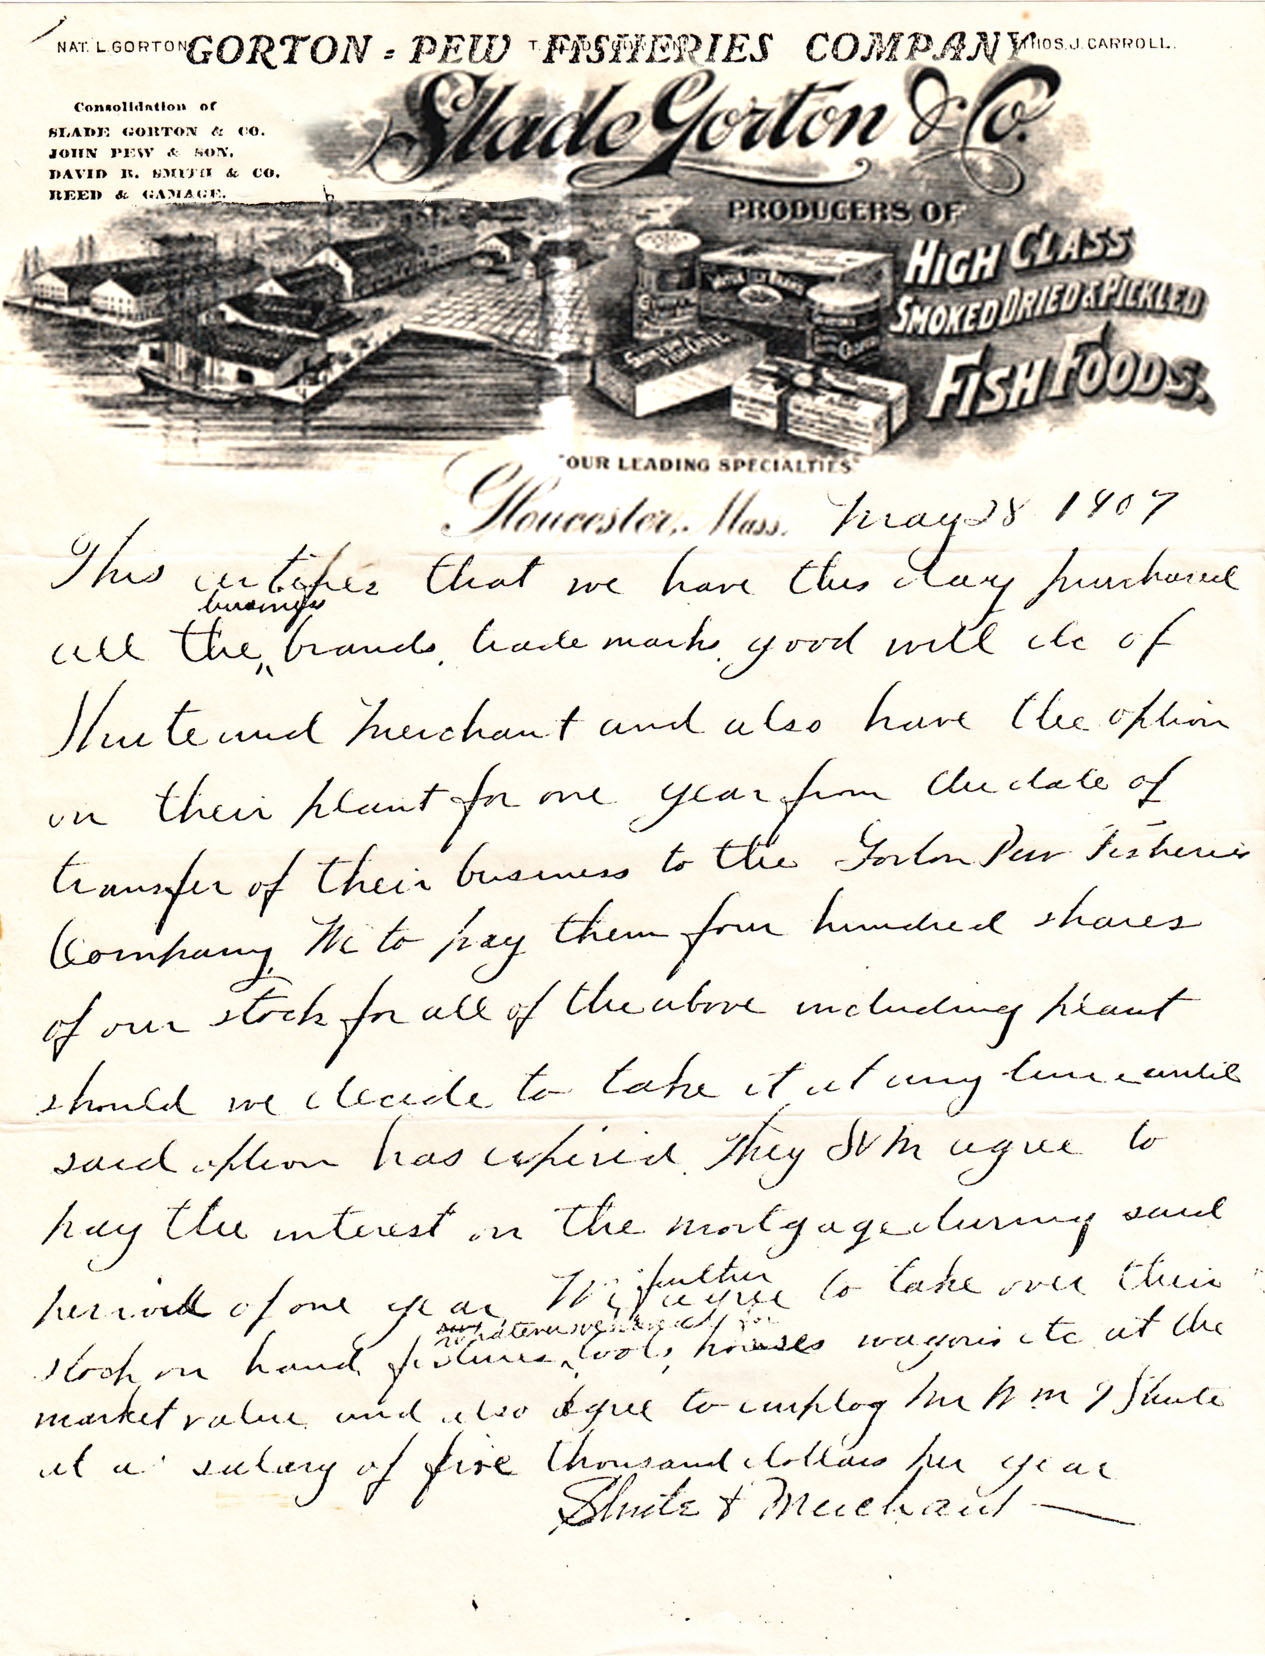 NAT. L. GORTON
GORTON-PEW FISHERIES COMPANY
THOS. J. CARROLL.
Consolidation of
SLADE GORTON & CO.
JOHN PEW & SON.
DAVID B. SMITH & CO.
REED & GAMAGE.
Slade Gorton & Co.
PRODUCERS OF
HIGH CLASS
SMOKED DRIED & PICKLED
FISH FOODS.
"OUR LEADING SPECIALTIES"
Gloucester, Mass. May 28 1907
This certifies that we have this day purchased
business
all the brands, trade marks, good will etc of
Shute and Merchant and also have the option
on their plant for one year from the date of
transfer of their business to the Gorton Pew Fisheries
Company, We to pay them four hundred shares
of our stock for all of the above including plant
should we decide to take it at any time until
said option has expired. They S & M agree to
pay the interest on the mortgage during said
period of one year. We further agree to take over their
stock on hand, fixtures, tools, horses wagons etc at the
market value and also agree to employ Mr Wm J Shute
at a salary of five thousand dollars per year
Shute & Merchant